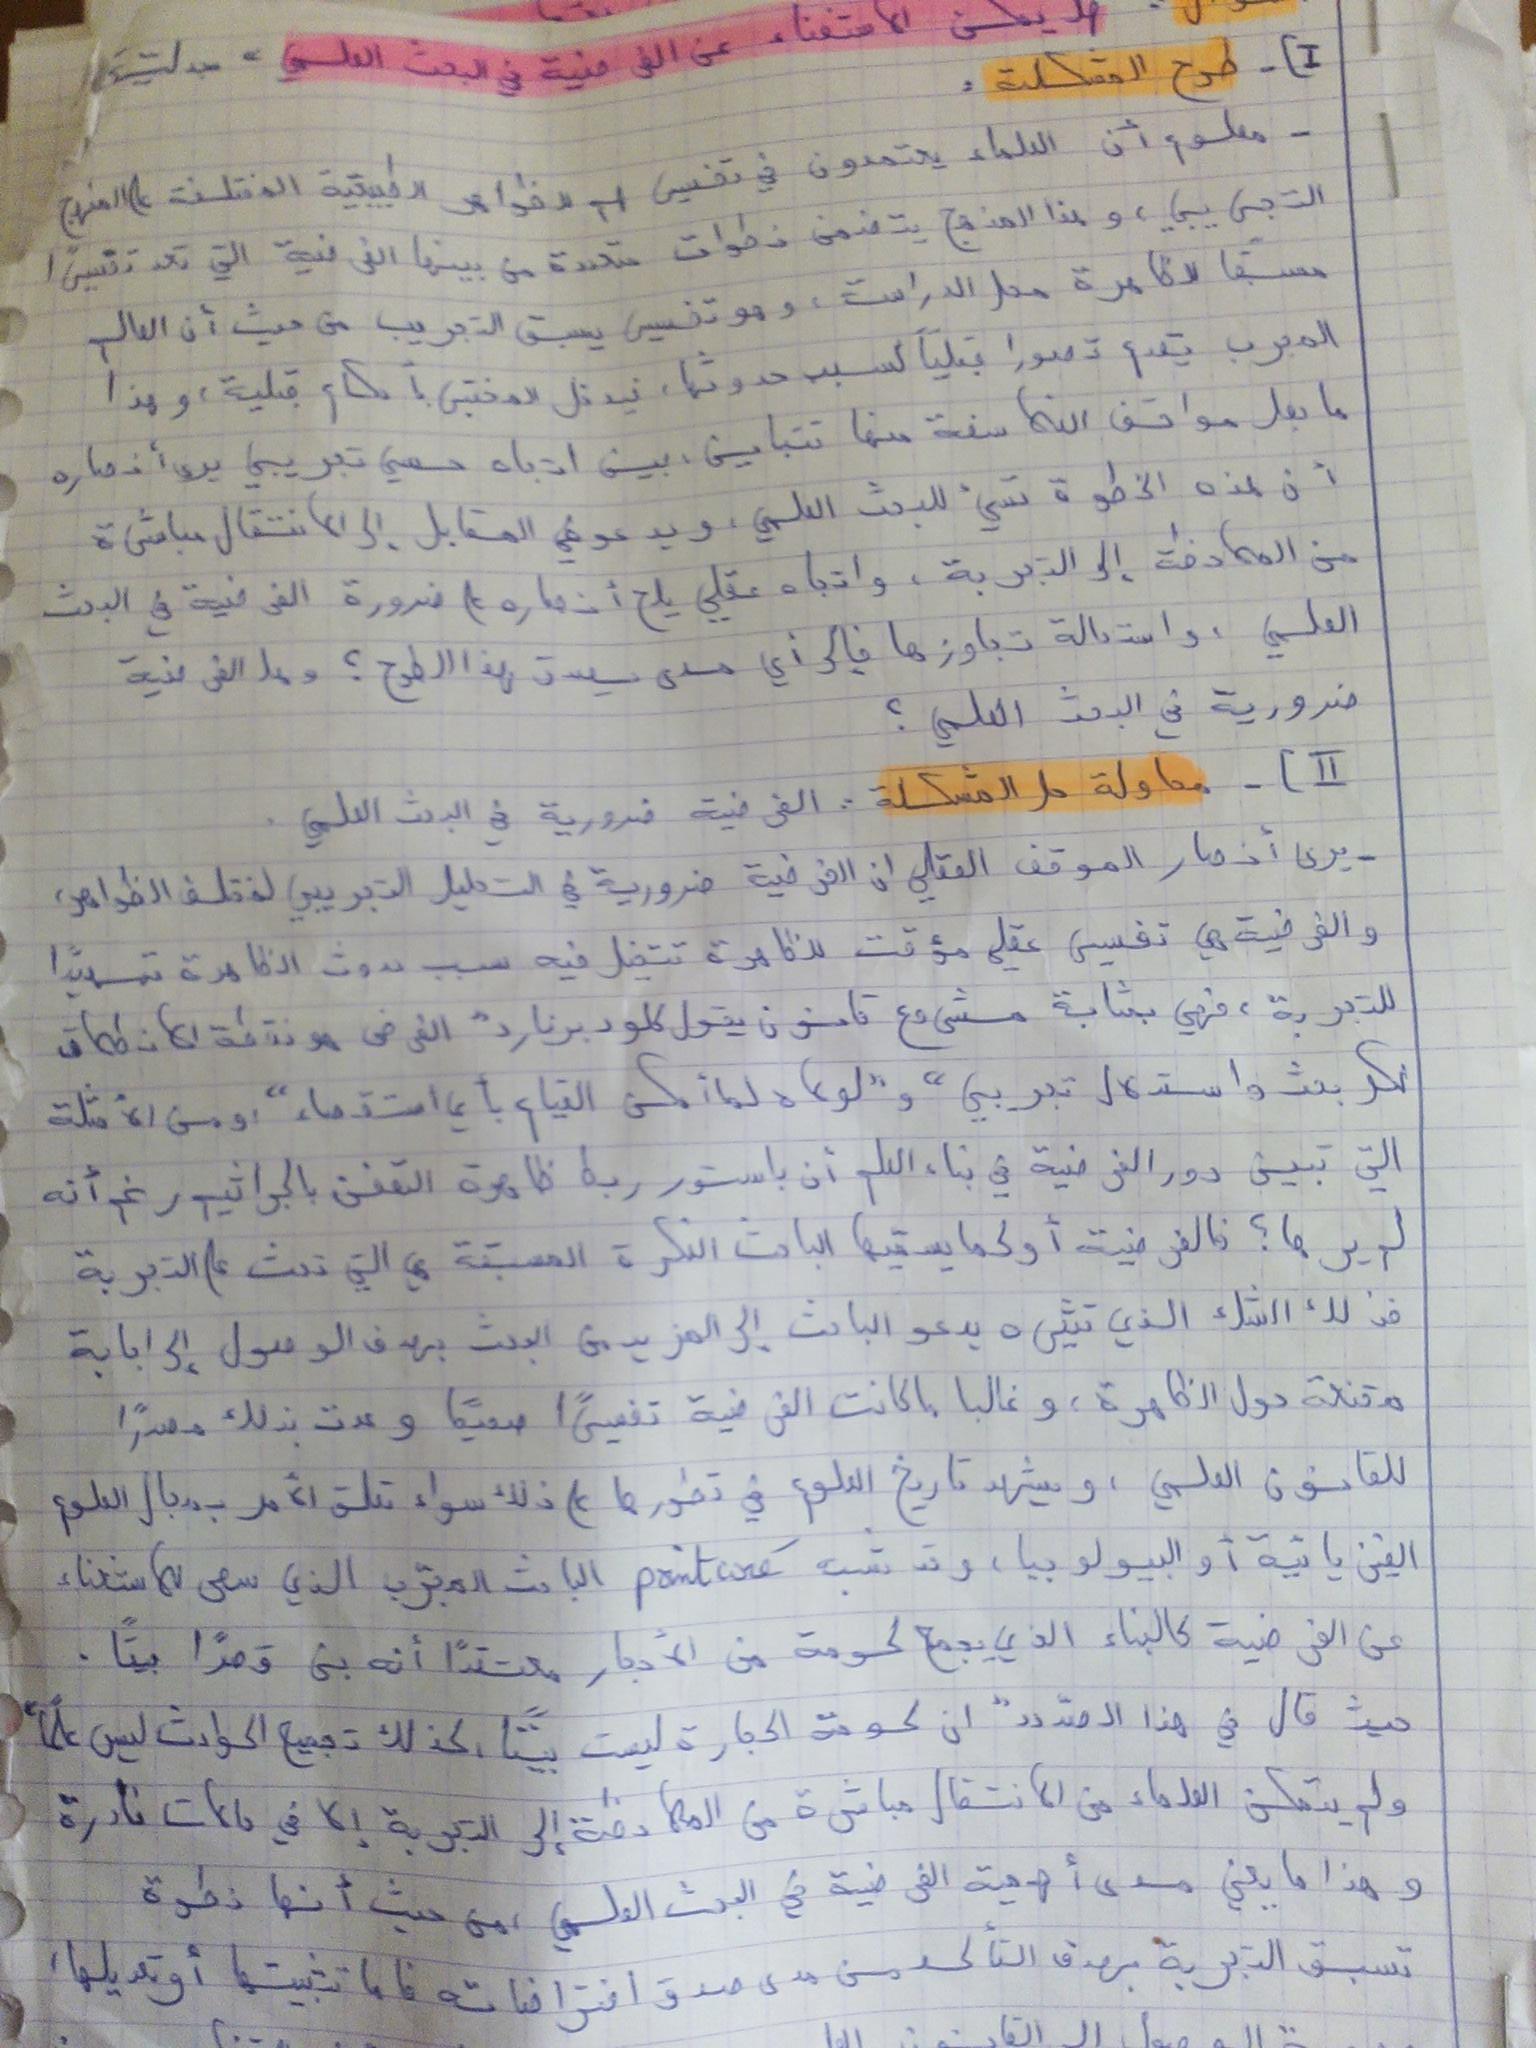 هل يمكن الاستغناء عن الفرضية في البحث العلمي " جدلية
I)- طرح المشكلة :
- معلوم أن العلماء يعتمدون في تفسيرهم للظواهر الطبيعية المختلفة على المنهج
التجريبي، وهذا المنهج يتضمن خطوات متعددة من بينها الفرضية التي تعد تفسيرًا
مسبقا للظاهرة محل الدراسة، وهو تفسير يسبق التجريب من حيث أن العالم
المجرب يقدم تصورا قبليًا لسبب حدوثها، فيدخل المختبر بأحكام قبلية، وهذا
ما جعل مواقف الفلاسفة منها تتباين، بين اتجاه حسي تجريبي يرى أنصاره
أن هذه الخطوة تسيء للبحث العلمي، ويدعو في المقابل إلى الانتقال مباشرة
من الملاحظة إلى التجربة، واتجاه عقلي يلح أنصاره على ضرورة الفرضية في البحث
العلمي، واستحالة تجاوزها فإلى أي مدى يصدق هذا الطرح؟ وهل الفرضية
ضرورية في البحث العلمي؟
II)- محاولة حل المشكلة : الفرضية ضرورية في البحث العلمي.
- يرى أنصار الموقف العقلي ان الفرضية ضرورية في التحليل التجريبي لمختلف الظواهر،
والفرضية هي تفسير عقلي مؤقت للظاهرة تتخيل فيه سبب حدوث الظاهرة تمهيدًا
للتجربة، فهي بمثابة مشروع قانون يقول كلود برنارد " الفرض هو نقطة الانطلاق
لكل بحث واستدلال تجريبي " و " لولاه لما أمكن القيام بأي استقصاء "، ومن الأمثلة
التي تبين دور الفرضية في بناء العلم أن باستور ربط ظاهرة التعفن بالجراثيم رغم أنه
لم يرها؟ فالفرضية أو كما يسميها الباحث الفكرة المسبقة هي التي تحث على التجربة
فذلك الشك الذي تثيره يدعو الباحث إلى المزيد من البحث بهدف الوصول إلى إجابة
مقنعة حول الظاهرة، وغالبا ما كانت الفرضية تفسيرًا صحيحًا وعدت بذلك مصدرًا
للقانون العلمي، ويشهد تاريخ العلوم في تطورها على ذلك سواء تعلق الأمر بمجال العلوم
الفيزيائية أو البيولوجيا، وقد شبه الباحث المجرب الذي سعى للاستغناء
عن الفرضية كالبناء الذي يجمع كومة من الأحجار معتقدًا أنه بنى قصرًا بيتًا.
حيث قال في هذا الصدد " ان كومة الحجارة ليست بيتًا، كذلك تجميع الحوادث ليس علمًا "
ولم يتمكن العلماء من الانتقال مباشرة من الملاحظة إلى التجربة إلا في حالات نادرة
وهذا ما يعني مدى أهمية الفرضية في البحث العلمي، من حيث أنها خطوة
تسبق التجربة بهدف التأكد من مدى صدق افتراضاته فإما تثبيتها أو تعديلها،